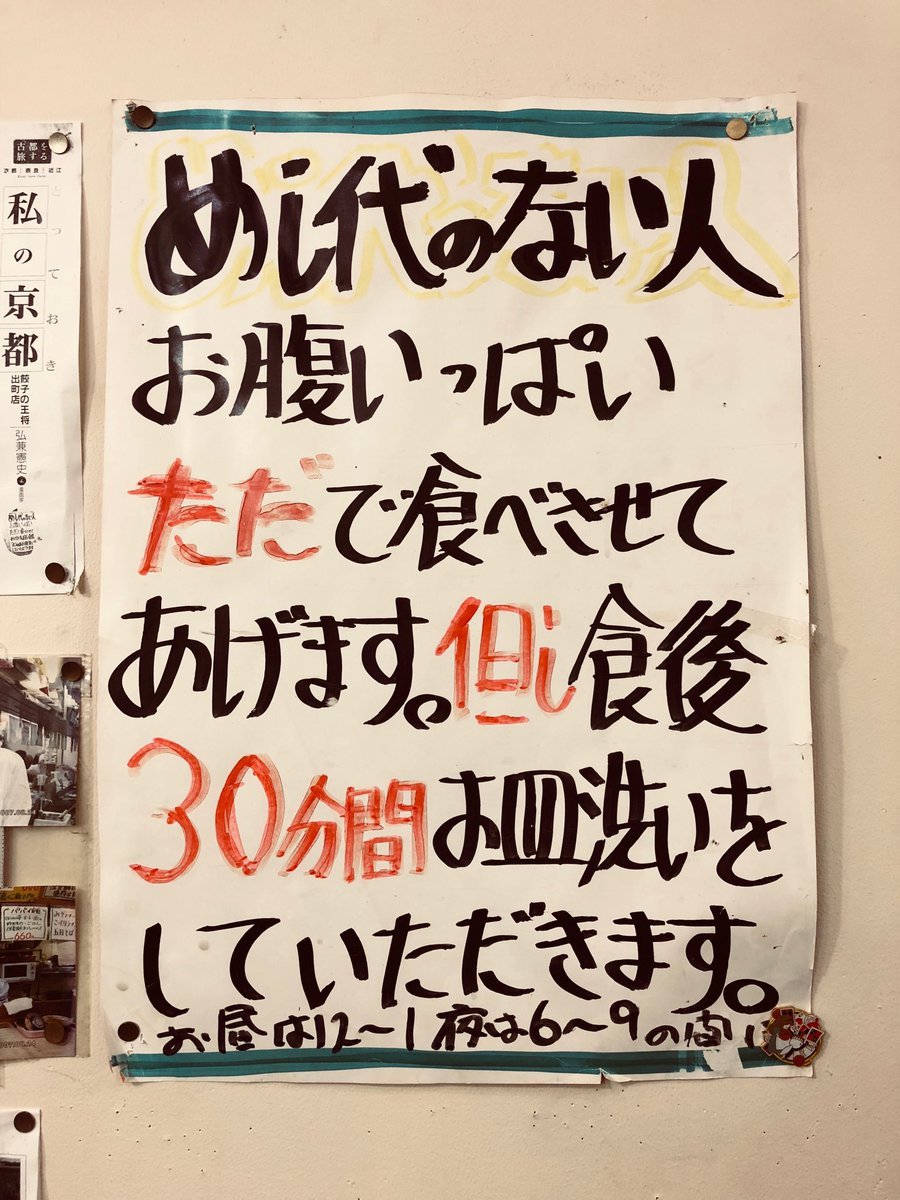 めし代のない人
お腹いっぱい
ただで食べさせて
あげます。但し食後
30分間お皿洗いを
していただきます。
お昼は12〜1夜は6〜9の間
古都を
旅する
京都|奈良|近江
とっておき
私の京都
餃子の王将
出町店
弘兼憲史
漫画家
めし代のない人
お腹いっぱい
660